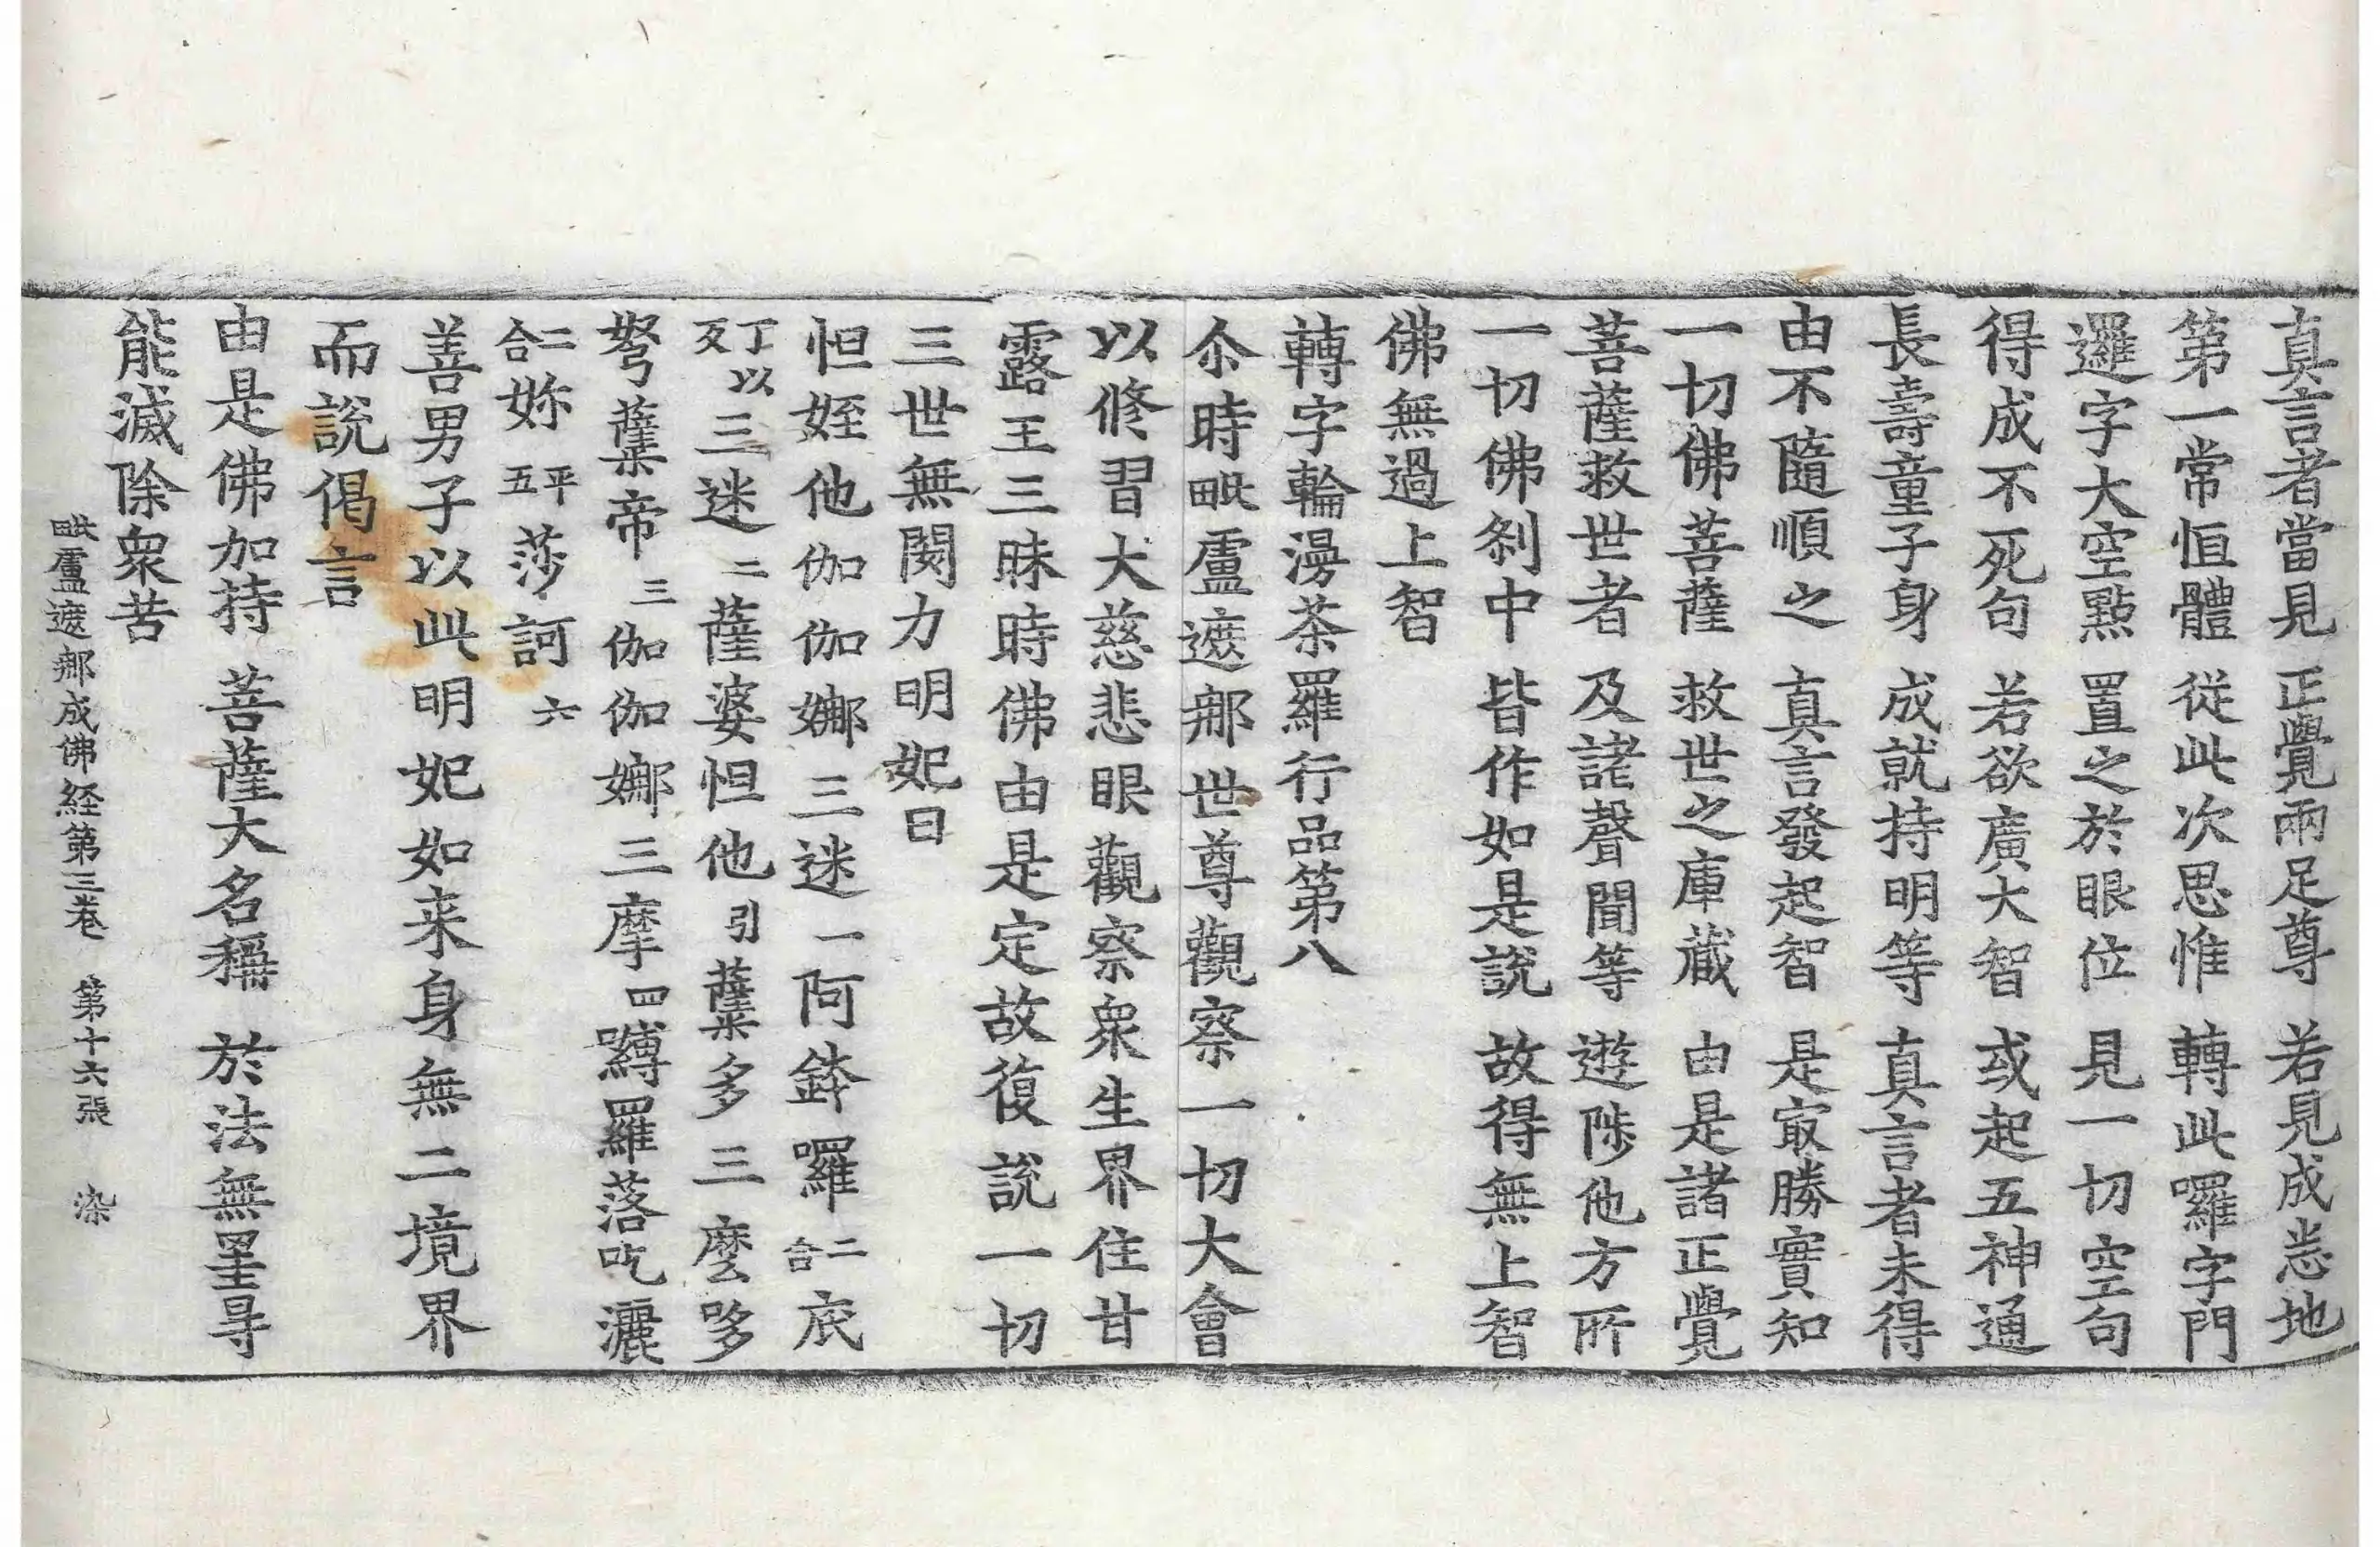 真言者當見　正覺兩足尊　若見成悉地
第一常恒體　従此次思惟　轉此囉字門
邏字大空點　置之於眼位　見一切空句
得成不死句　若欲廣大智　或起五神通
長壽童子身　成就持明等　真言者未得
由不隨順之　真言發起智　是㝡勝實知
一切佛菩薩　救世之庫藏　由是諸正覺
菩薩救世者　及諸聲聞等　遊陟他方所
一切佛刹中　皆作如是說　故得無上智
佛無過上智
轉字輪漫茶羅行品第八
尒時毗盧遮那世尊觀察一切大會
以修習大慈悲眼觀察衆生界住甘
露王三昧時佛由是定故復說一切
三世無閡力明妃曰
怛姪他伽伽娜三迷一阿鉢囉二合底
丁以反三迷二薩婆怛他引蘖多三麼哆
弩蘖帝三伽伽娜三摩四嚩羅落吃灑
二合妳平五莎訶六
善男子以此明妃如来身無二境界
而說偈言
由是佛加持　菩薩大名稱　於法無罣㝵
能滅除衆苦
毗盧遮那成佛経第三卷　第十六張　染